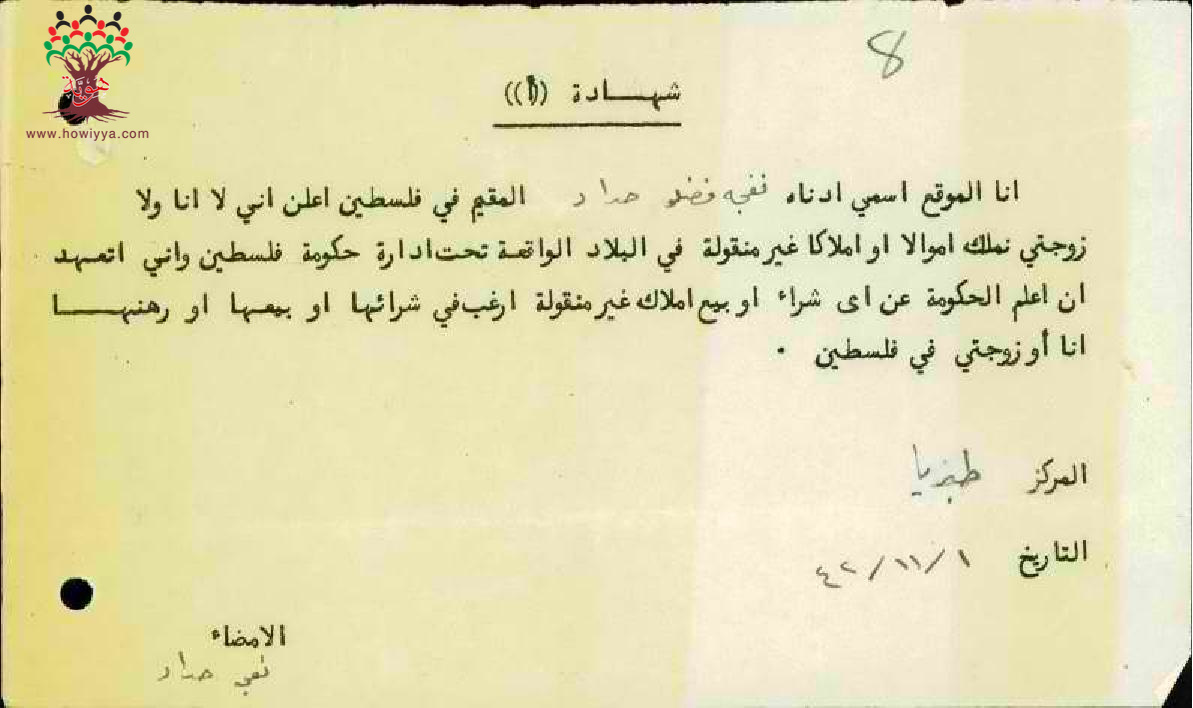 هوية
www.howiyya.com
8
شهـــادة ((أ))
انا الموقع اسمي ادناه حداد المقيم في فلسطين اعلن اني لا انا ولا
زوجتي نملك اموالا او املاكا غير منقولة في البلاد الواقعة تحت ادارة حكومة فلسطين واني اتعهد
ان اعلم الحكومة عن اى شراء او بيع املاك غير منقولة ارغب في شرائها او بيعها او رهنهـــا
انا أو زوجتي في فلسطين .
المركز طبريا
التاريخ ١/١١/٤٢
الامضاء
حداد